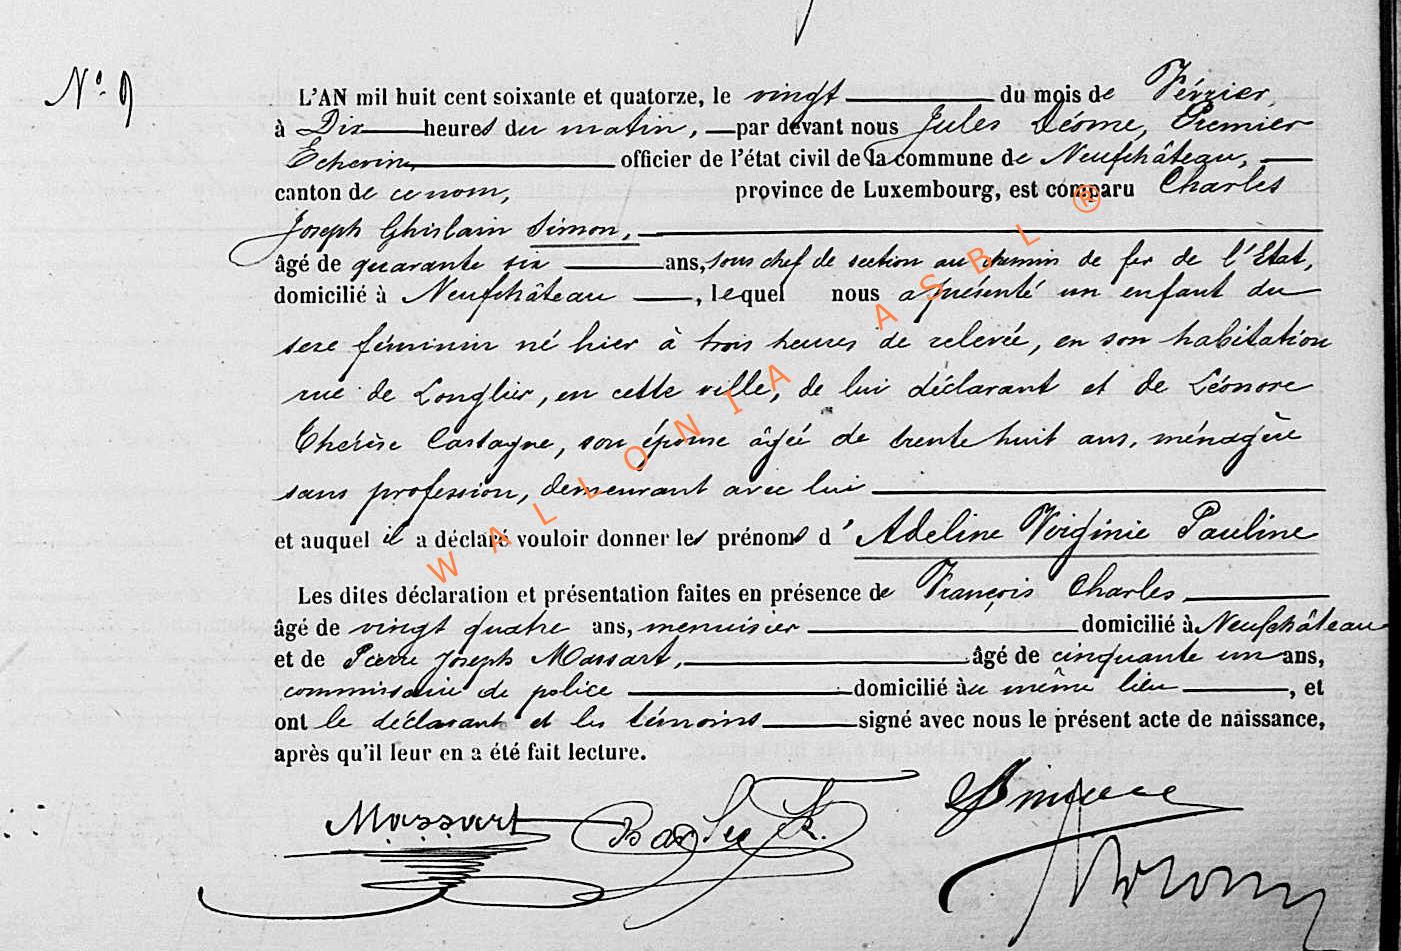 N° 9
L'AN mil huit cent soixante et quatorze, le vingt du mois de Février
à Dix heures du matin, par devant nous Jules Désme, Premier
Echevin, officier de l'état civil de la commune de Neufchâteau,
canton de ce nom, province de Luxembourg, est comparu Charles
Joseph Ghislain Simon,
âgé de quarante six ans, sous chef de section au chemin de fer de l'Etat,
domicilié à Neufchâteau, lequel nous a présenté un enfant du
sexe féminin né hier à trois heures de relevée, en son habitation
rue de Longlier, en cette ville, de lui déclarant et de Léonore
Thérèse Castagne, son épouse âgée de trente huit ans, ménagère
sans profession, demeurant avec lui
et auquel il a déclaré vouloir donner les prénoms d'Adeline Virginie Pauline
Les dites déclaration et présentation faites en présence de François Charles,
âgé de vingt quatre ans, menuisier domicilié à Neufchâteau
et de Pierre Joseph Massart, âgé de cinquante un ans,
commissaire de police domicilié au même lieu, et
ont le déclarant et les témoins signé avec nous le présent acte de naissance,
après qu'il leur en a été fait lecture.
Massart
WALLONIA ASBL ®